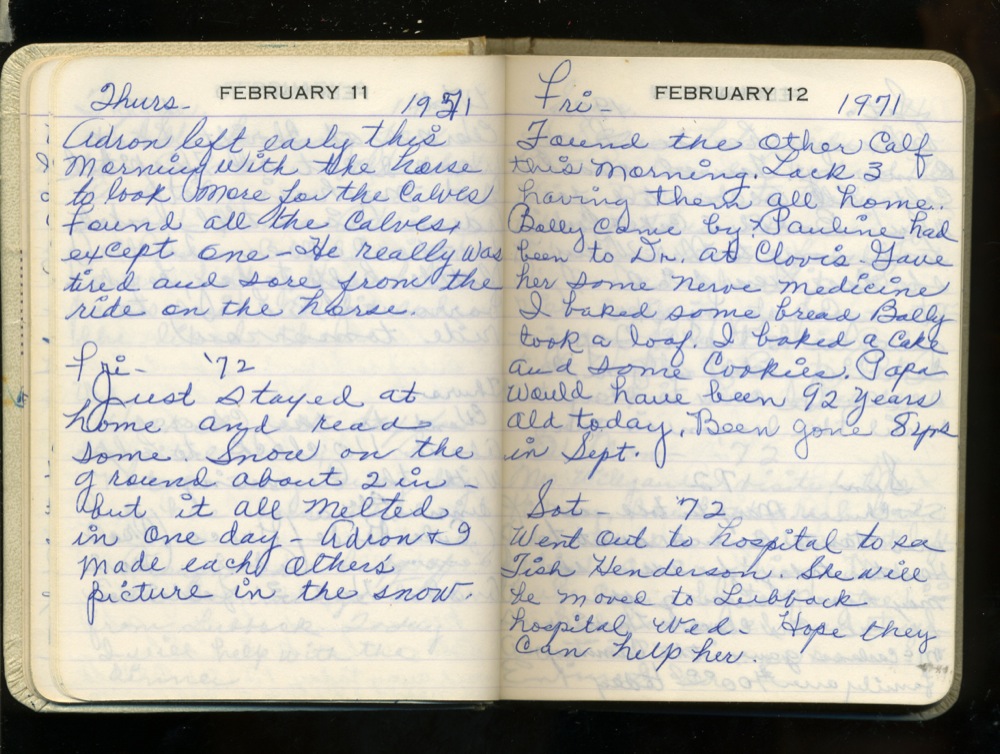 Thurs- FEBRUARY 11 1971
Adron left early this
Morning with the horse
to look more for the Calves
Found all the Calves,
except one - He really was
tired and sore from the
ride on the horse.
Fri- '72
Just stayed at
home and read
some snow on the
ground about 2 in -
but it all melted
in one day - Adron & I
made each others
picture in the snow.
Fri- FEBRUARY 12 1971
Found the other Calf
this morning. Lack 3
having them all home.
Bally came by. Pauline had
been to Dr. at Clovis. Gave
her some nerve medicine
I baked some bread Bally
took a loaf. I baked a cake
and some Cookies. Papa
would have been 92 years
old today. Been gone 8 yrs
in Sept.
Sat- '72
Went out to hospital to se
Tish Henderson. She will
be moved to Lubbock
hospital, Wed- Hope they
can help her.